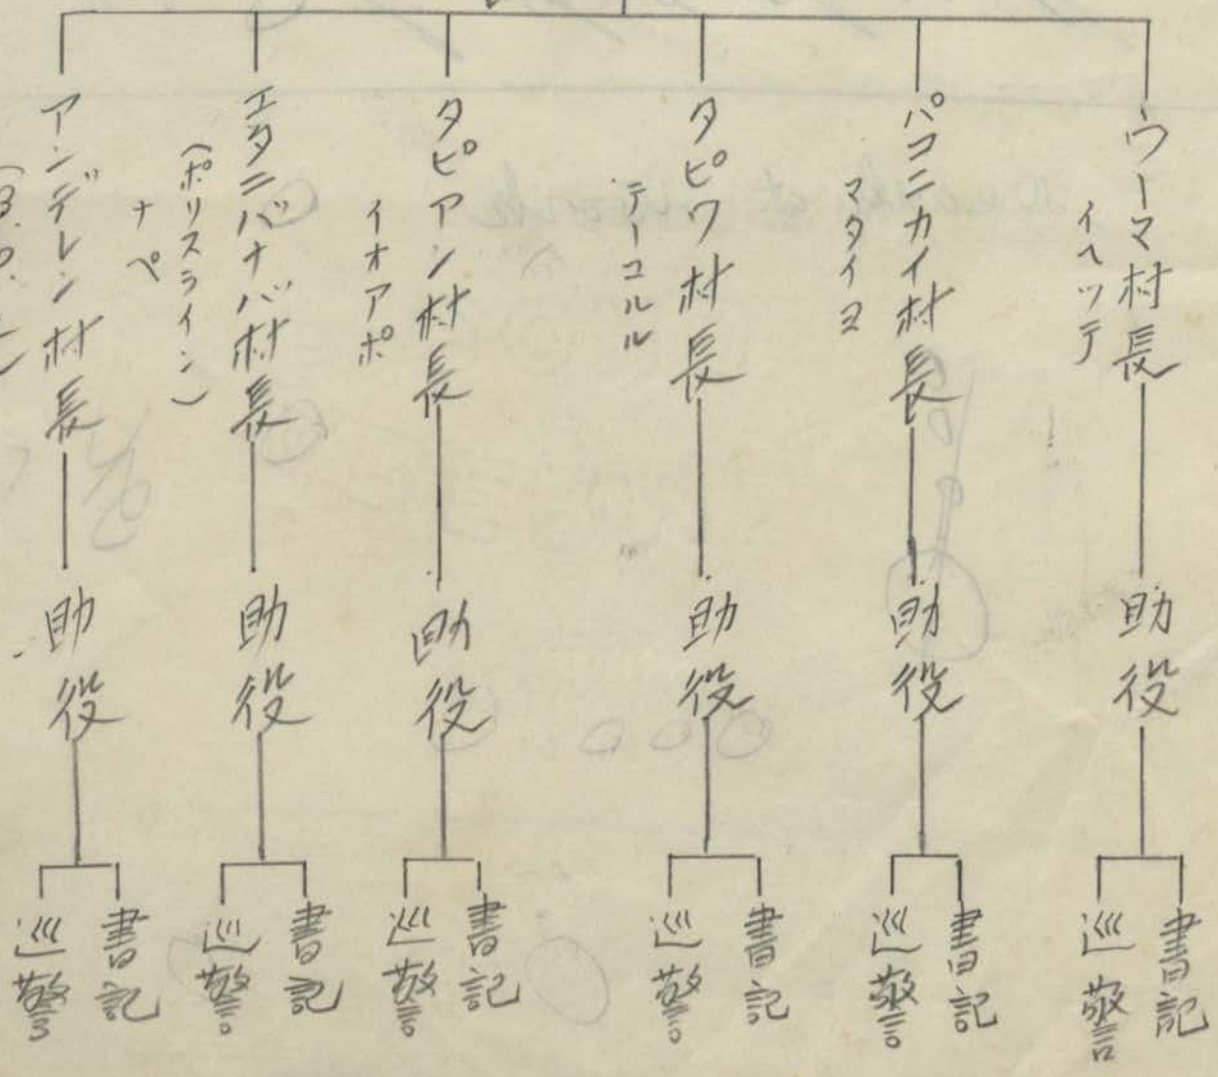 ウーマ村長
イヘッテ
助役
書記
巡警
パコニカイ村長
マタイヨ
助役
書記
巡警
タピワ村長
テーコルル
助役
書記
巡警
タピアン村長
イオアポ
助役
書記
巡警
エタニバナバ村長
(ポリスライン)
ナペ
助役
書記
巡警
アンデレン村長
助役
書記
巡警